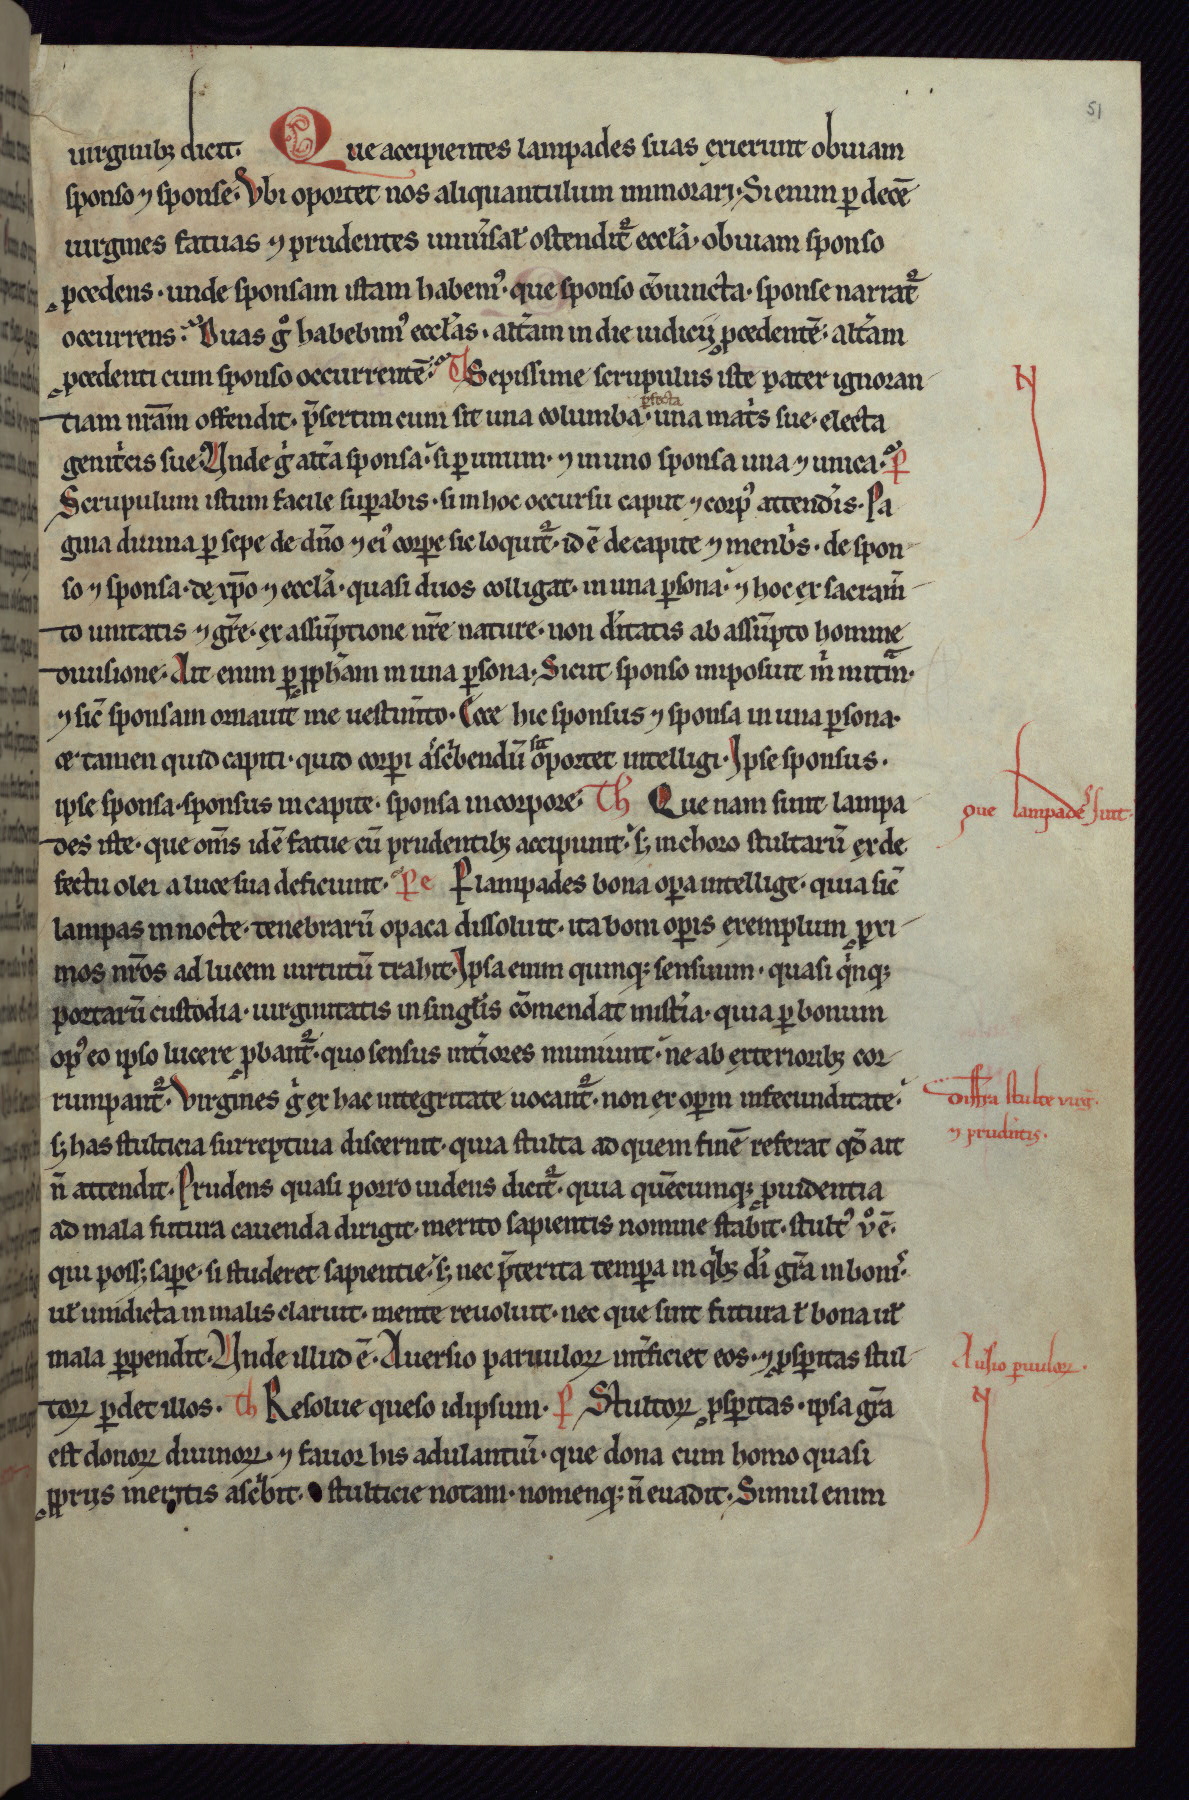 51
uirginibꝫ dicit. Que accipientes lampades suas exierunt obuiam
sponso ⁊ sponse. Vbi oportet nos aliquantulum immorari. Si enim ꝑ decē
uirgines fatuas ⁊ prudentes uniu͛saƚ ostendit᷑ eccl̄a. obuiam sponso
ꝓcedens. unde sponsam istam habemꝰ. que sponso cōiuncta. sponse narrat᷑
occurrens. Duas gͦ habebimꝰ eccl̄as. alt͛am in die iudicij ꝓcedentē. alt͛am
ꝓcedenti cum sponso occurrentē. Th Sepissime scrupulus iste pater ignoran
tiam nr̄am offendit. p̄sertim cum sit una columba. ꝑfecta una matͥs sue. electa
genitͥcis sue. Vnde gͥ alt͛a sponsa. si ꝑ unum. ⁊ in uno sponsa una ⁊ unica. P
Scrupulum istum facile suꝑabis. si in hoc occursu caput ⁊ corpꝰ attend͛is. Pa
gina diuina ꝑ sepe de dn̄o ⁊ eiꝰ corꝑe sic loquit᷑. id ē de capite ⁊ menbͥs. de spon
so ⁊ sponsa. de xp̄o ⁊ eccl̄a. quasi duos colligat. in una ꝑsona. ⁊ hoc ex sacram̄
to unitatis ⁊ gr̄e. ex assūptione nr̄e nature. non d͛itatis ab assūpto homine
diuisione. Ait enim ꝑ ꝓph̄am in una ꝑsona. Sicut sponso imposuit mͥ mitrͣm.
⁊ sic̄ sponsam ornauit me uestim̄to. Ecce hic sponsus ⁊ sponsa in una ꝑsona.
et tamen quid capiti. quid corꝑi asc͛bendū sit oportet intelligi. Ipse sponsus.
ipse sponsa. sponsus in capite. sponsa in corpore. Th Que nam sunt lampa
des iste. que om̄s idē fatue cū prudentibꝫ accipiunt. sꝫ in choro stultarū ex de
fectu olei a luce sua deficiunt. Pe P lampades bona oꝑa intellige. quia sic̄
lampas in nocte. tenebrarū opaca dissoluit. ita boni oꝑis exemplum ꝓxi
mos nr̄os ad lucem uirtutū trahit. Ipsa enim quinqꝫ sensuum. quasi qͥnqꝫ
portarū custodia. uirginitatis in singƚis cōmendat mist͛ia. quia ꝑ bonum
opꝰ eo ipso lucere ꝓbant᷑. quo sensus int͛iores muniunt. ne ab exterioribꝫ cor
rumpant᷑. Virgines gͥ ex hac integritate uocant᷑. non ex oꝑm infecunditate.
sꝫ has stulticia surreptiua discernit. quia stulta ad quem finē referat qd̄ ait
n̄ attendit. Prudens quasi porro uidens dicit᷑. quia quēcumqꝫ ꝓuidentia
ad mala futura cauenda dirigit. merito sapientis nomine stabit. stultꝰ uͦ ē.
qui possꝫ saꝑe. si studeret sapientie. sꝫ nec p̄terita temꝑa in qͥbꝫ di̅ gr̄a in bonis
uƚ uindicta in malis claruit. mente reuoluit. nec que sint futura ƚ bona uƚ
mala ꝑpendit. Vnde illud ē. Auersio paruuloꝝ int͛ficiet eos. ⁊ ꝓsꝑitas stul
toꝝ ꝑdet illos. Th Resolue queso id ipsum. P Stultoꝝ ꝓsꝑitas. ipsa gr̄a
est donoꝝ diuinoꝝ. ⁊ fauor his adulantiū. que dona cum homo quasi
ꝓprijs meritis asc͛bit. stulticie notam. nomenqꝫ n̄ euadit. Simul enim
N
que lampades sunt.
diffr̄a stulte uirḡ.
⁊ prudētis.
Au͛sio puuloꝝ.
N